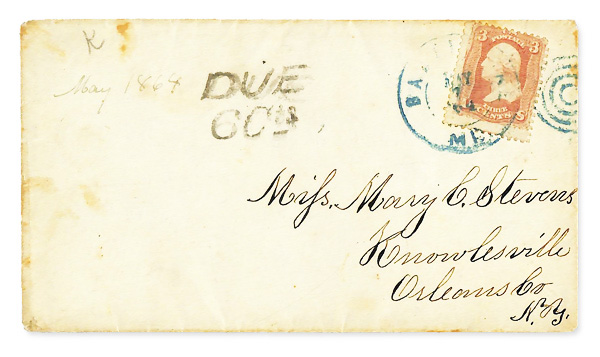 K
May 1864
DUE
6 Cts
3 POSTAGE 3
THREE
CENTS
BA
MAY
MD
Miss. Mary C. Stevens
Knowlesville
Orleans Co
N.Y.